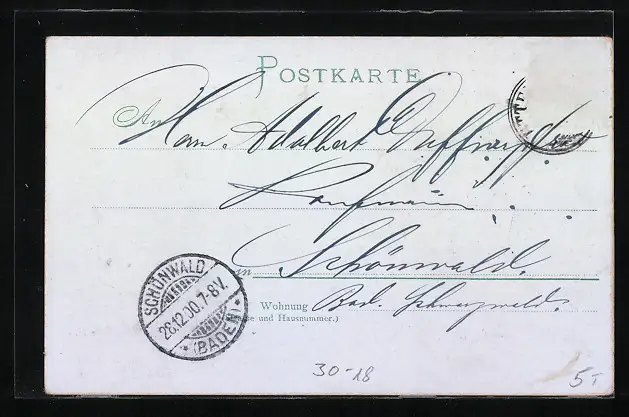 POSTKARTE
An
Herrn Adalbert
Kaufmann
in Schönwald.
Wohnung Bad. Schwarzwald.
(Straße und Hausnummer.)
SCHÖNWALD
28.12.00.7-8V.
* (BADEN) *
30-18
5T